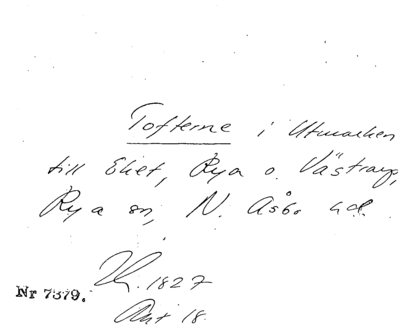 Tofterne i Utmarken
till Eket, Rya o. Västraryd,
Rya sn, N. Åsbo hd.
1827
Nr 7379.
Akt 18.